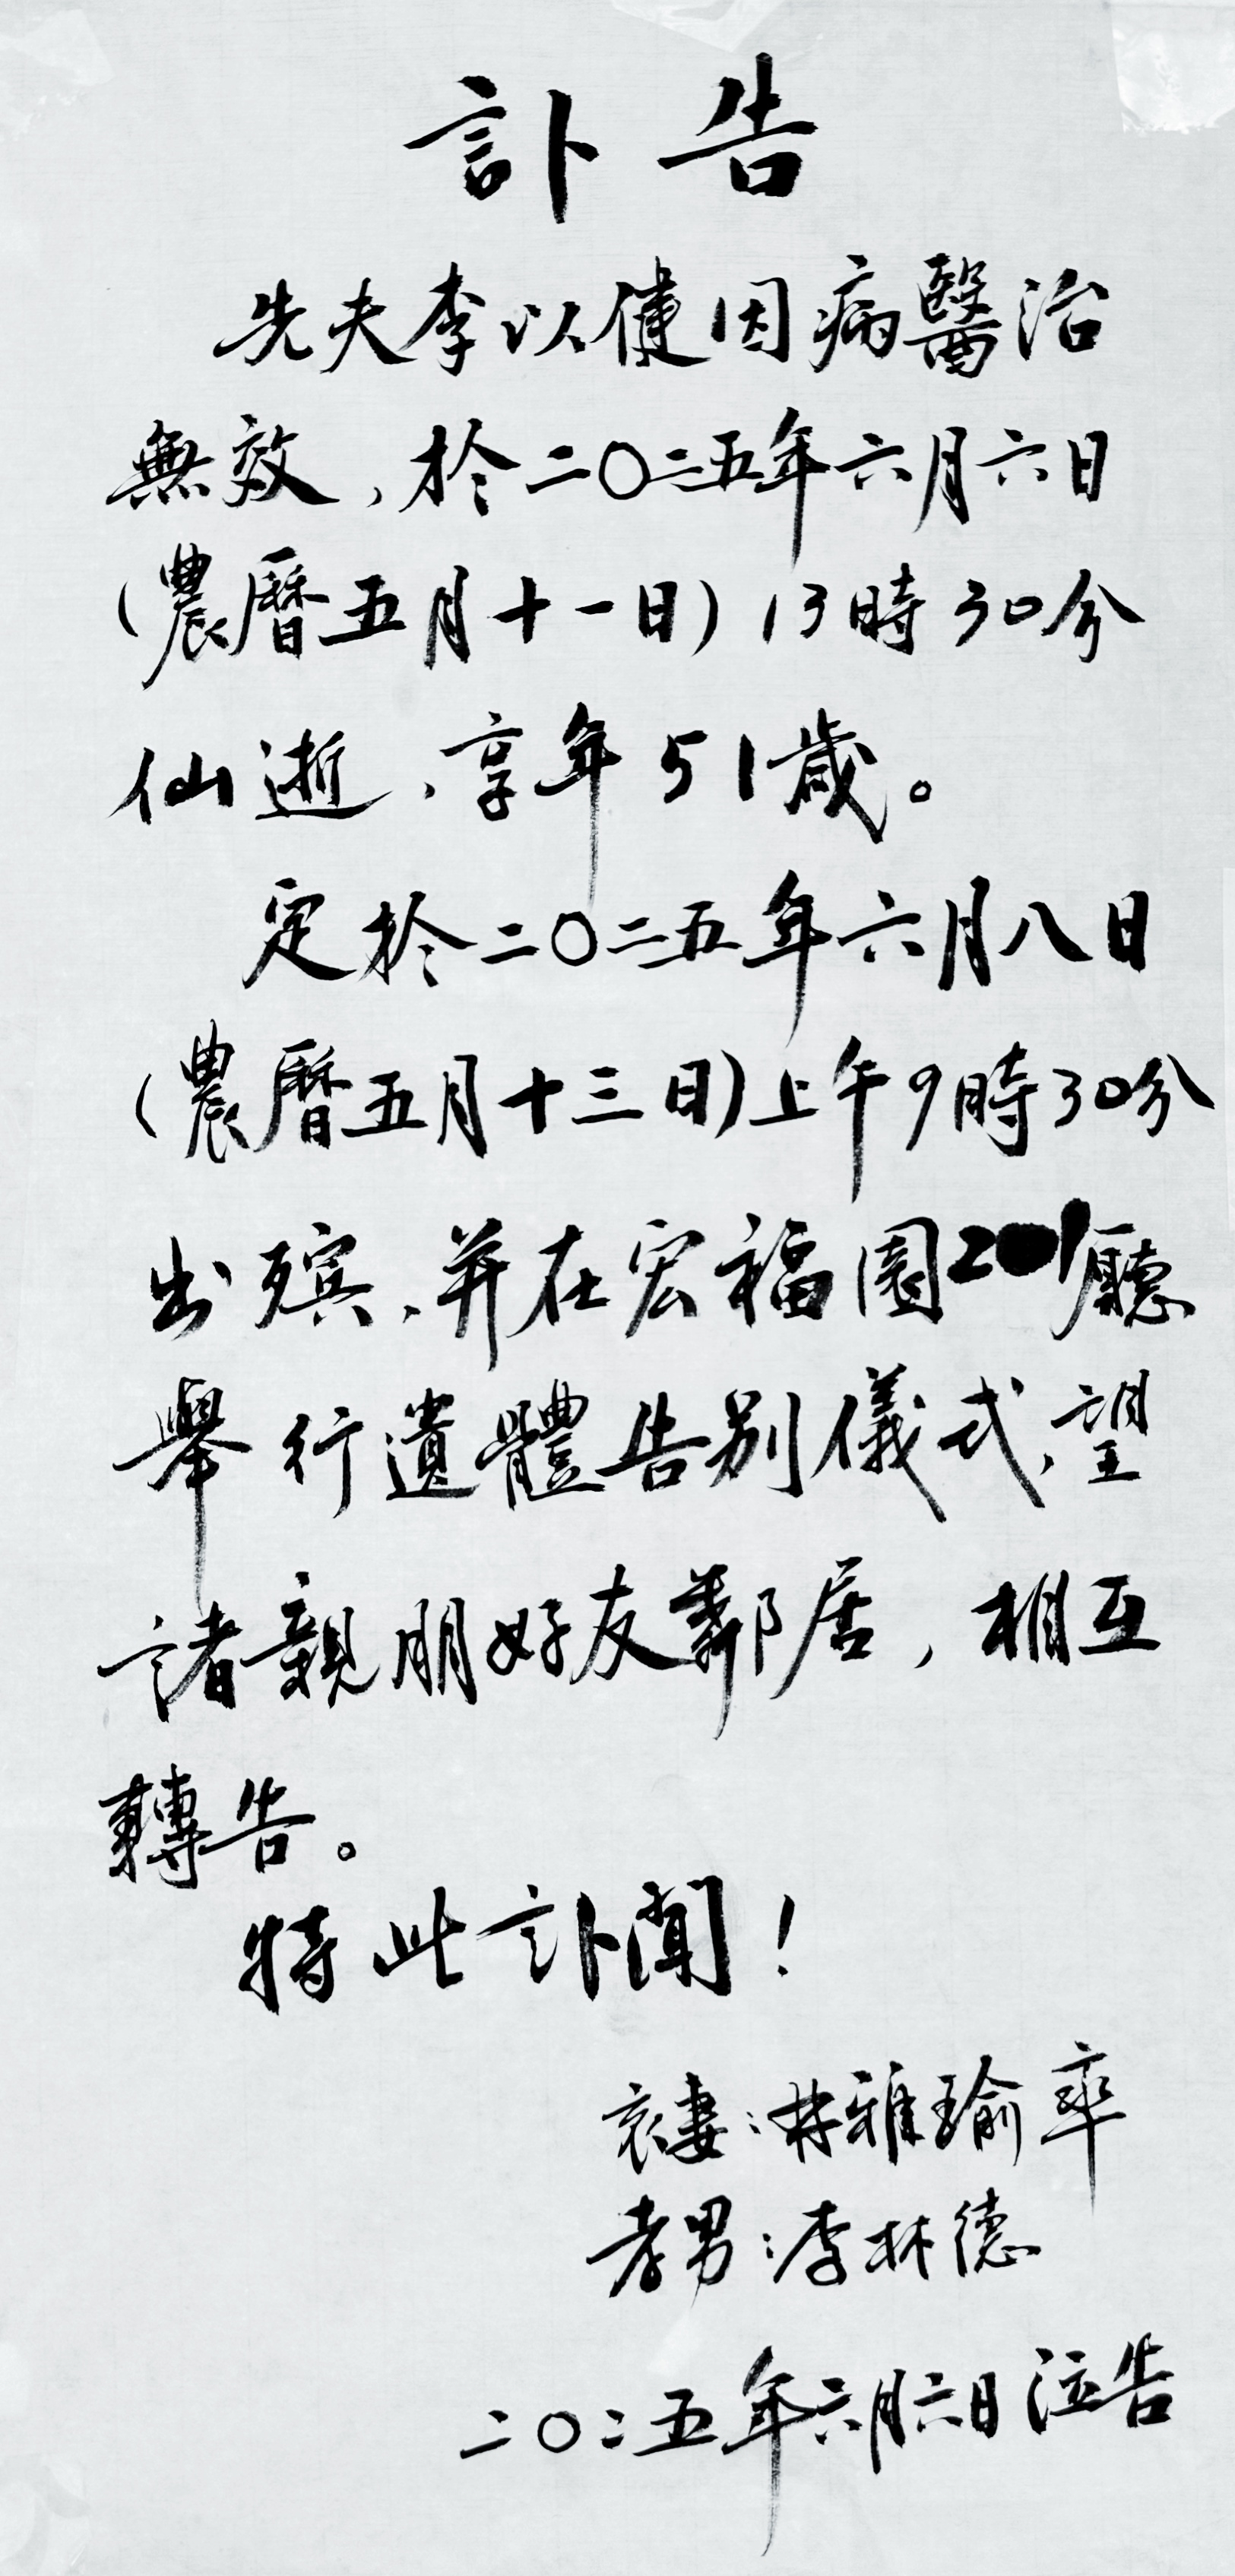 訃告
先夫李以健因病醫治
無效，於二〇二五年六月六日
(農曆五月十一日)13時30分
仙逝，享年51歲。
定於二〇二五年六月八日
(農曆五月十三日)上午9時30分
出殯，并在宏福園201廳
舉行遺體告别儀式，望
諸親朋好友鄰居，相互
轉告。
特此訃聞！
哀妻：林雅瑜率
孝男：李林德
二〇二五年六月六日泣告